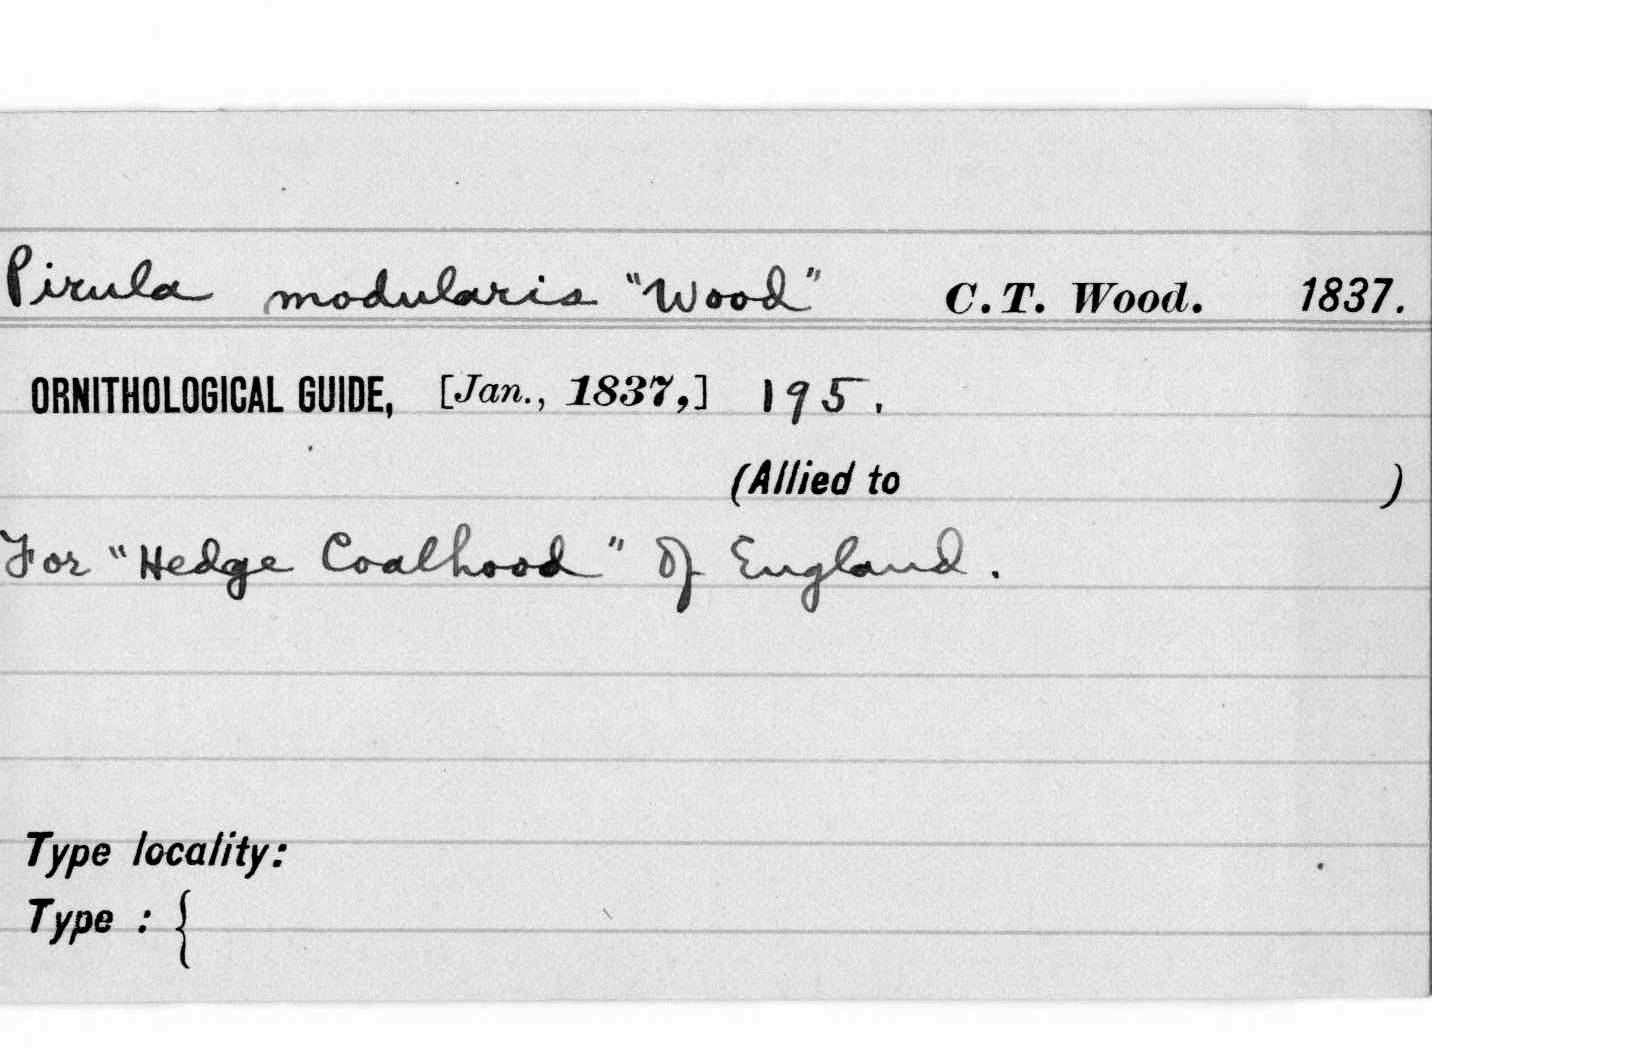 Pirula modularis "Wood" C. T. Wood. 1837.
ORNITHOLOGICAL GUIDE, [Jan., 1837,] 195.
(Allied to )
For "Hedge Coalhood" of England.
Type locality:
Type : {